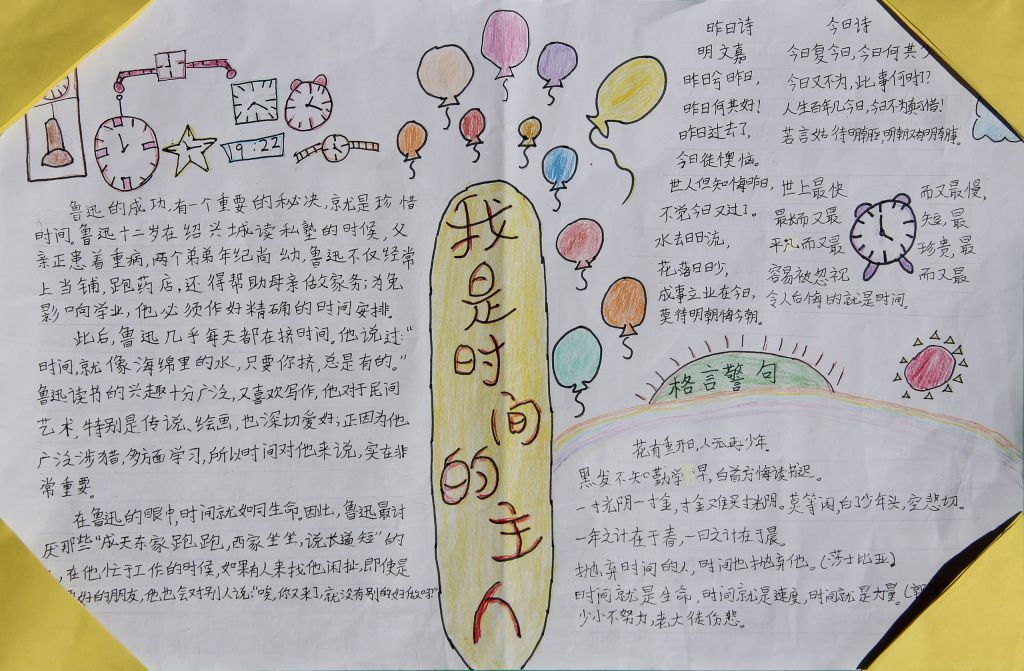 9:22
鲁迅的成功,有一个重要的秘决,就是珍惜
时间。鲁迅十二岁在绍兴城读私塾的时候,父
亲正患着重病,两个弟弟年纪尚幼,鲁迅不仅经常
上当铺,跑药店,还得帮助母亲做家务;为免
影响学业,他必须作好精确的时间安排。
此后,鲁迅几乎每天都在挤时间。他说过:“
时间,就像海绵里的水,只要你挤,总是有的。”
鲁迅读书的兴趣十分广泛,又喜欢写作,他对于民间
艺术,特别是传说、绘画,也深切爱好;正因为他
广泛涉猎,多方面学习,所以时间对他来说,实在非
常重要。
在鲁迅的眼中,时间就如同生命。因此,鲁迅最讨
厌那些“成天东家跑跑,西家坐坐,说长道短”的
,在他忙于工作的时候,如果有人来找他闲扯,即使是
好的朋友,他也会对别人说:“唉,你又来了,就没有别的好做吗?”
我是时间的主人
昨日诗
明文嘉
昨日兮昨日,
昨日何其好!
昨日过去了,
今日徒懊恼。
世人但知悔昨日,
不觉今日又过了。
水去日日流,
花落日日少,
成事立业在今日,
莫待明朝悔今朝。
今日诗
今日复今日,今日何其少
今日又不为,此事何时了?
人生百年几今日,今日不为真可惜!
若言姑待明朝至,明朝又有明朝事。
世上最快 而又最慢,
最长而又最 短,最
平凡而又最 珍贵,最
容易被忽视 而又最
令人后悔的就是时间。
格言警句
花有重开日,人无再少年
黑发不知勤学早,白首方悔读书迟。
一寸光阴一寸金,寸金难买寸光阴。莫等闲,白了少年头,空悲切。
一年之计在于春,一日之计在于晨。
抛弃时间的人,时间也抛弃他。(莎士比亚)
时间就是生命,时间就是速度,时间就是力量。(郭
少小不努力,老大徒伤悲。